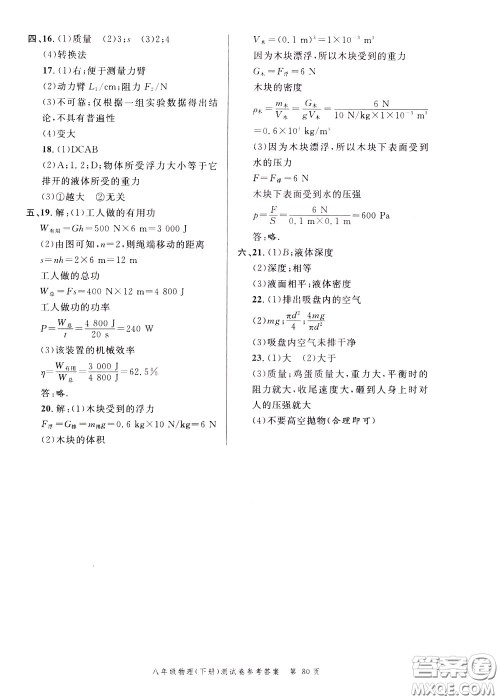 四、16.(1)质量　(2)3;s　(3)2;4
(4)转换法
17.(1)右;便于测量力臂
(2)动力臂 L₁/cm;阻力 F₂/N
(3)不可靠;仅根据一组实验数据得出结
论,不具有普遍性
(4)变大
18.(1)DCAB
(2)A;1,2;D;物体所受浮力大小等于它
排开的液体所受的重力
(3)①越大　②无关
五、19.解:(1)工人做的有用功
W有用=Gh=500 N×6 m=3 000 J
(2)由图可知,n=2,则绳端移动的距离
s=nh=2×6 m=12 m
工人做的总功
W总=Fs=400 N×12 m=4 800 J
工人做功的功率
P=W总/t=4 800 J/20 s=240 W
(3)该装置的机械效率
η=W有用/W总=3 000 J/4 800 J=62.5%
答:略.
20.解:(1)木块受到的浮力
F浮=G排=m排g=0.6 kg×10 N/kg=6 N
(2)木块的体积
V木=(0.1 m)³=1×10⁻³ m³
因为木块漂浮,所以木块受到的重力
G木=F浮=6 N
木块的密度
ρ木=m木/V木=G木/gV木=6 N/10 N/kg×1×10⁻³ m³
=0.6×10³ kg/m³
(3)因为木块漂浮,所以木块下表面受到
水的压力
F=F浮=6 N
木块下表面受到水的压强
p=F/S=6 N/0.1 m×0.1 m=600 Pa
答:略.
六、21.(1)B;液体深度
(2)深度;相等
(3)液面相平;液体密度
22.(1)排出吸盘内的空气
(2)mg;πd²/4;4mg/πd²
(3)吸盘内空气未排干净
23.(1)大　(2)大于
(3)质量;鸡蛋质量大,重力大,平衡时的
阻力就大,收尾速度大,砸到人身上时对
人的压强就大
(4)不要高空抛物(合理即可)
八年级物理(下册)测试卷参考答案　第 80 页